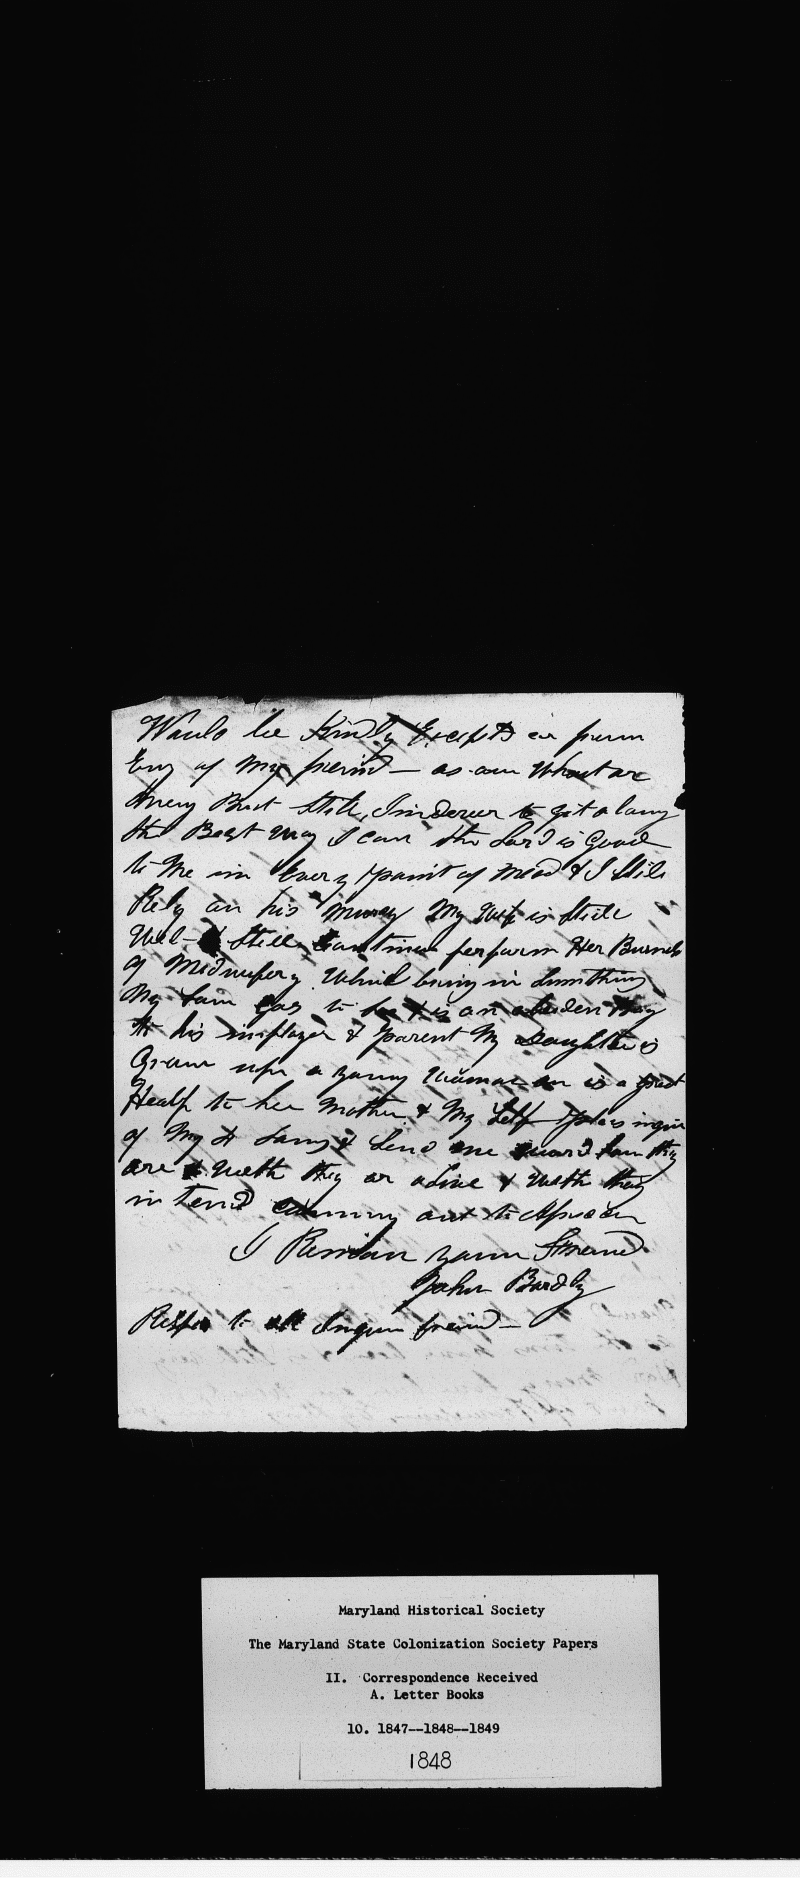 Would be Kindly Excepts en purm
Eny of My freind — as our Whont are
meny But Still, I indever to git a lang
the Best way I can the Lord is Good
to Me in Every point of mind & I Still
Rely on his murcy My Wife is Still
Well — & Still Continue perfurm Her Busnes
of Midwifery Which bring in Sumthing
My Sam is an Boy
to his imployer & parent My Daughter is
Grown upe a young Woman an is a great
Healp to her Mother & My Self pleas inquire
of My & Send me word how they
are & weth they or alive & weth they
in tend cumming out to Africa
I Remian youre Freind
John Bordly
Respes to all Inquir freind —
Maryland Historical Society
The Maryland State Colonization Society Papers
II. Correspondence Received
A. Letter Books
10. 1847--1848--1849
1848